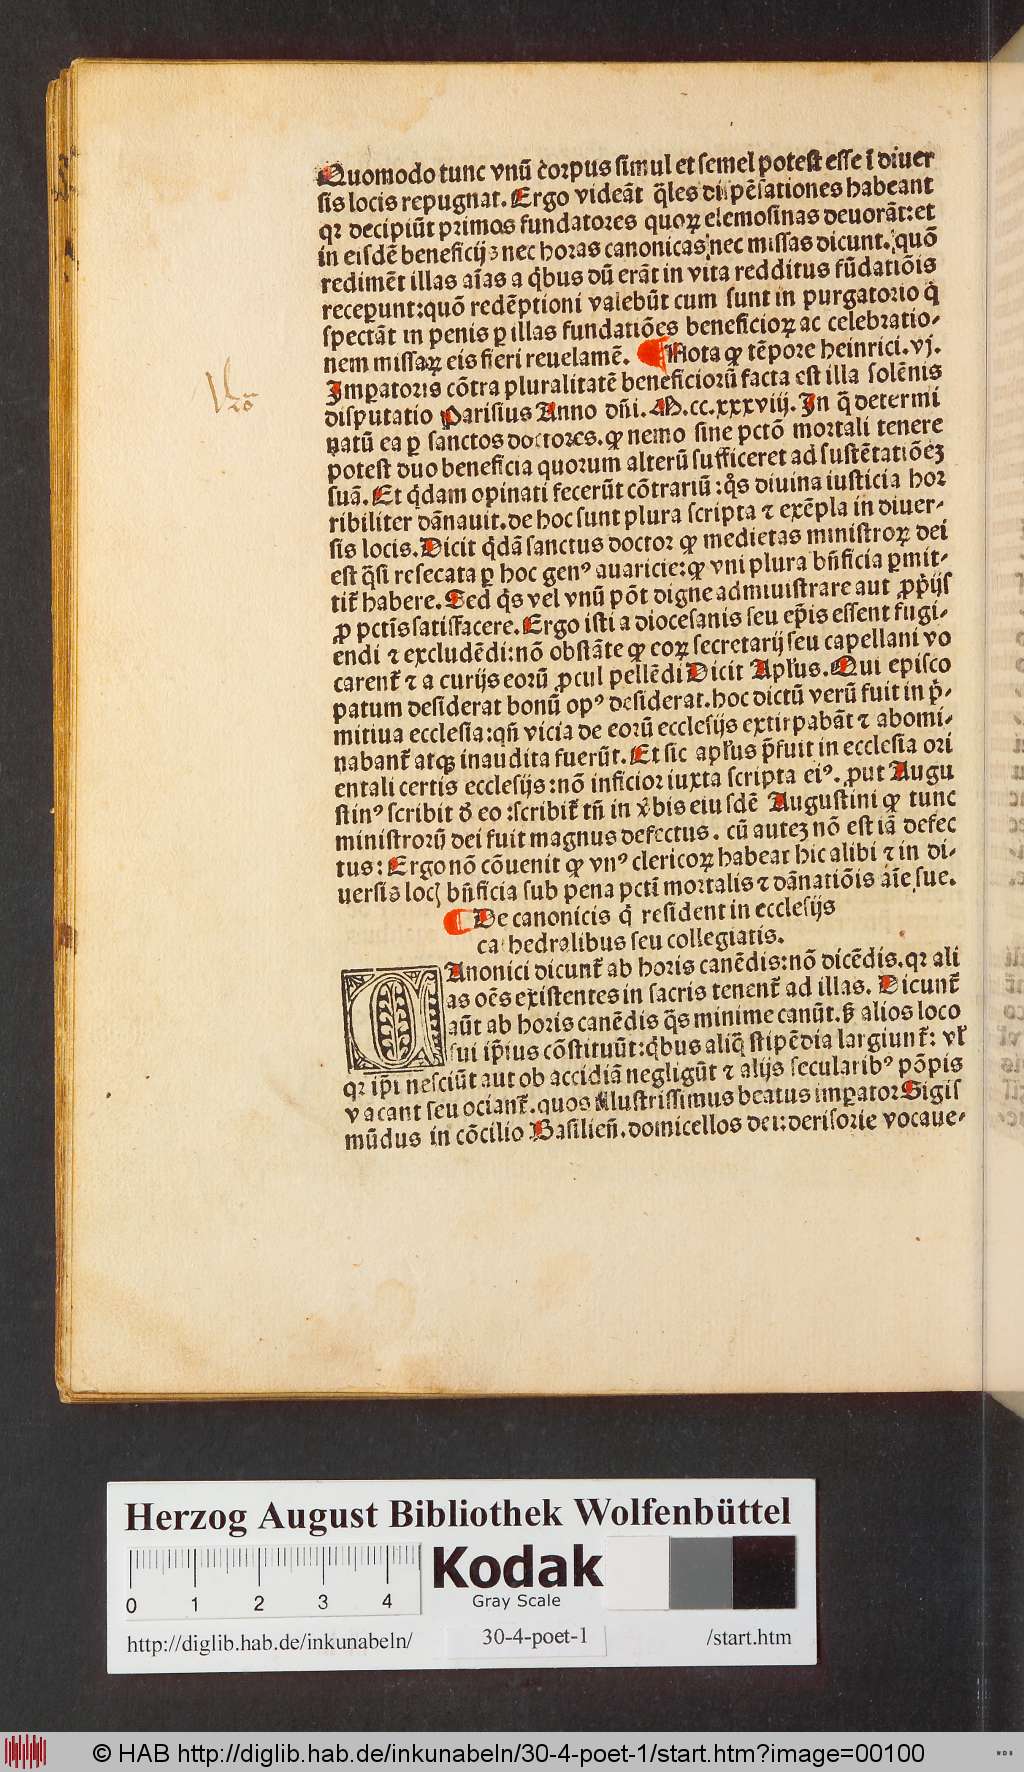 Quomodo tunc vnū corpus simul et semel potest esse ī diuer
sis locis repugnat. Ergo videāt q̄les dispēsationes habeant
qꝛ decipiūt primos fundatores quoꝝ elemosinas deuorāt: et
in eisdē beneficijs nec horas canonicas nec missas dicunt. quō
redimēt illas aīas a qͥbus dū erāt in vita redditus fūdatiōis
receperunt: quō redēptioni valebūt cum sunt in purgatorio q̄
spectāt in penis ꝑ illas fundatiōes beneficioꝝ ac celebratio-
nem missaꝝ eis fieri reuelamē. ¶ Nota ꝙ tēpore heinrici. vj.
Imꝑatoris cōtra pluralitatē beneficiorū facta est illa solēnis
disputatio Parisius Anno dn̄i. M.cc.xxxviij. In q̄ determi
natū ea ꝑ sanctos doctores. ꝙ nemo sine pctō mortali tenere
potest duo beneficia quorum alterū sufficeret ad sustētatiōeꝫ
suā. Et qͥdam opinati fecerūt cōtrariū: qͦs diuina iusticia hor
ribiliter dānauit. de hoc sunt plura scripta ⁊ exēpla in diuer-
sis locis. Dicit qͥdā sanctus doctor ꝙ medietas ministroꝝ dei
est q̄si resecata ꝑ hoc genꝰ auaricie: ꝙ vni plura bn̄ficia ꝑmit-
tit̄ habere. Sed qͥs vel vnū pōt digne administrare aut ꝓprijs
ꝓ pctīs satisfacere. Ergo isti a diocesanis seu ep̄is essent fugi-
endi ⁊ excludēdi: nō obstāte ꝙ eoꝝ secretarij seu capellani vo
carent̄ ⁊ a curijs eorū procul pellēdi Dicit Apl'us. Qui episco
patum desiderat bonū opꝰ desiderat. hoc dictū verū fuit in pͥ-
mitiua ecclesia: qn̄ vicia de eorū ecclesijs extirpabāt ⁊ abomi-
nabant̄ atqꝫ inaudita fuerūt. Et sic apl'us p̄fuit in ecclesia ori
entali certis ecclesijs: nō inficior iuxta scripta eiꝰ. ꝓut Augu
stinꝰ scribit de eo: scribit̄ tn̄ in v̄bis eiusdē Augustini ꝙ tunc
ministrorū dei fuit magnus defectus. cū auteꝫ nō est iā defec
tus: Ergo nō cōuenit ꝙ vnꝰ clericoꝝ habeat hic alibi ⁊ in di-
uersis locꝭ bn̄ficia sub pena pcti mortalis ⁊ dānatiōis aīe sue.
¶ De canonicis q̄ resident in ecclesijs
cathedralibus seu collegiatis.
CAnonici dicunt̄ ab horis canēdis: nō dicēdis. qꝛ ali
as oēs existentes in sacris tenent̄ ad illas. Dicunt̄
aūt ab horis canēdis qͦs minime canūt. sꝫ alios loco
sui ip̄ius cōstituūt: qͥbus aliq̄ stipēdia largiunt̄: vl'
qꝛ ip̄i nesciūt aut ob accidiā negligūt ⁊ alijs secularibꝰ pōpis
vacant seu ociant̄. quos illustrissimus beatus imꝑator Sigis
mūdus in cōcilio Basilien̄. domicellos dei: derisorie vocaue-
Herzog August Bibliothek Wolfenbüttel
0 1 2 3 4
Kodak
Gray Scale
http://diglib.hab.de/inkunabeln/ 30-4-poet-1 /start.htm
© HAB http://diglib.hab.de/inkunabeln/30-4-poet-1/start.htm?image=00100